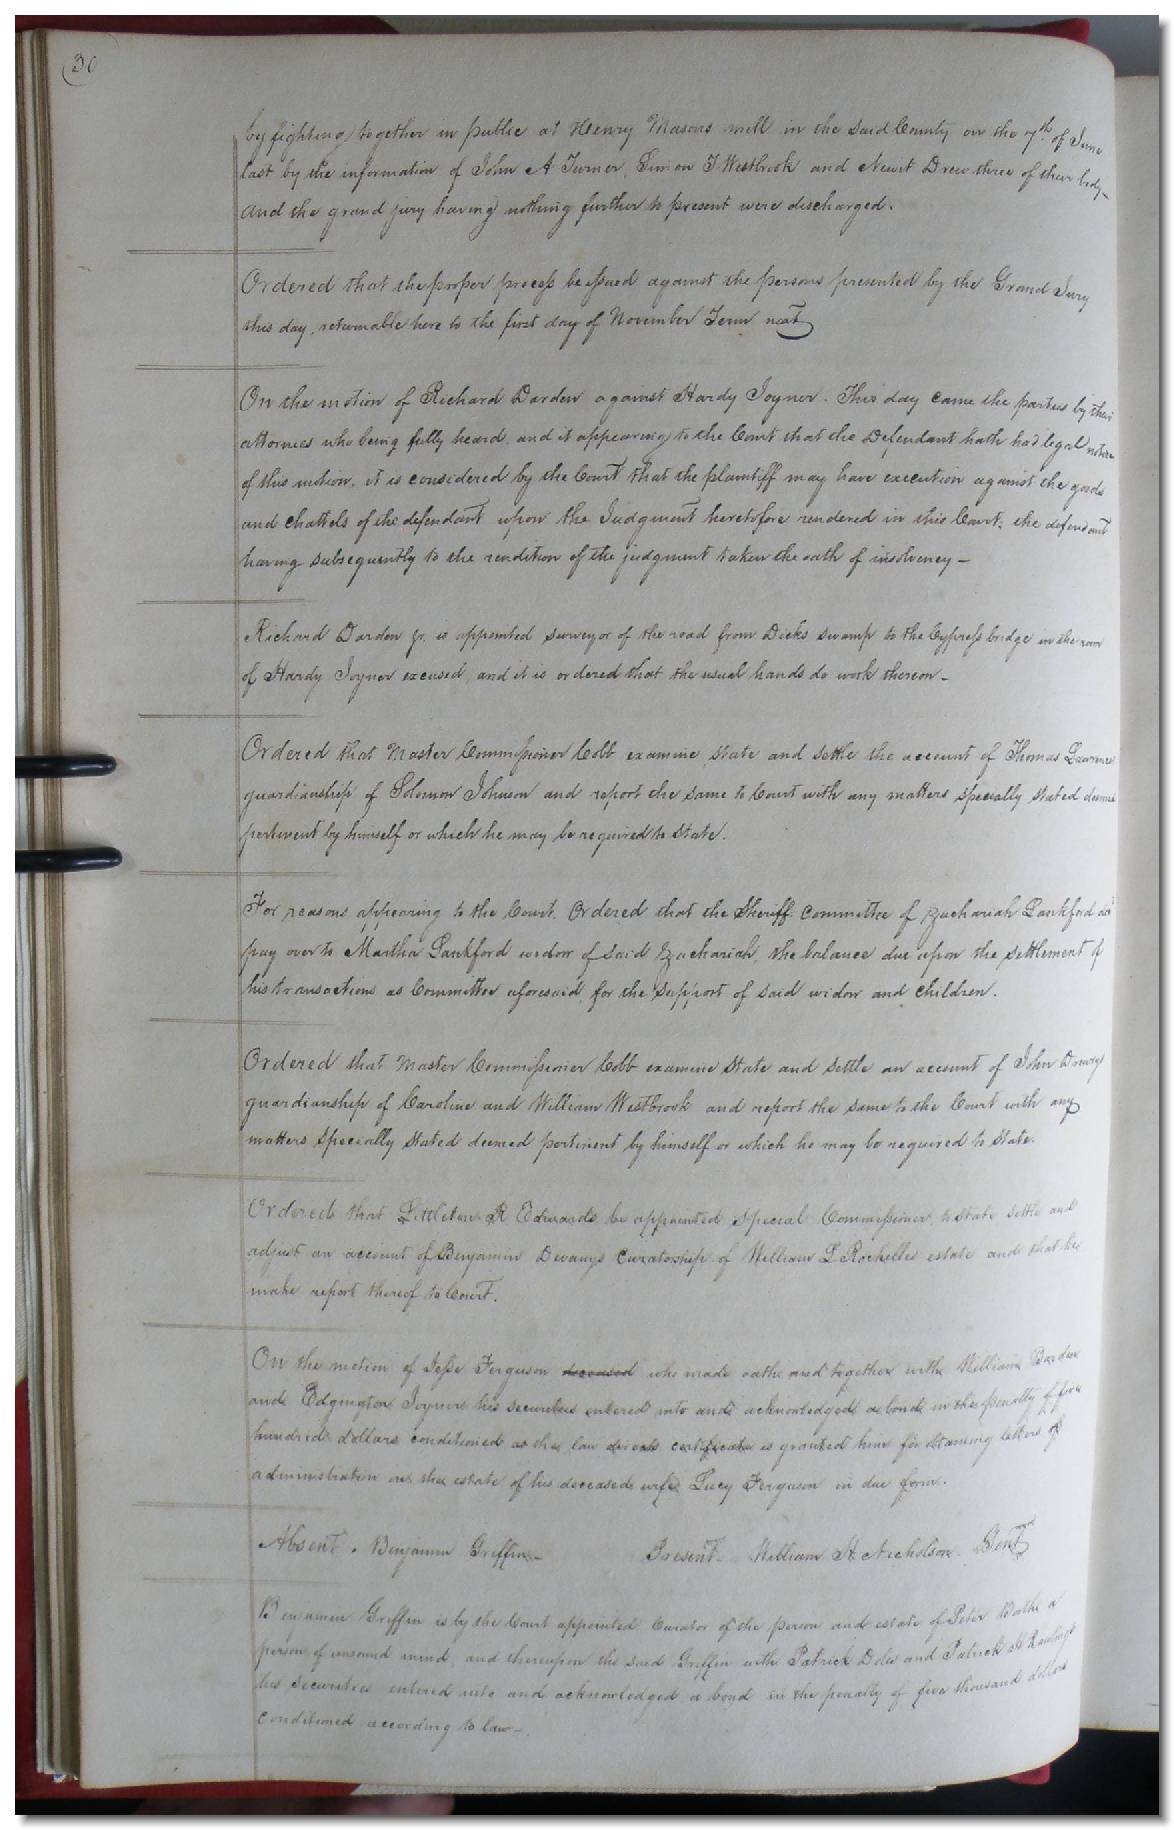 30
by fighting together in public at Henry Masons mill in the said County on the 7th of June
last by the information of John A Turner, Simon T Westbrook and Newit Drew three of their body-
and the grand jury having nothing further to present were discharged.
Ordered that the proper process be issued against the persons presented by the Grand Jury
this day, returnable here to the first day of November Term next
On the motion of Richard Darden against Hardy Joyner. This day came the parties by their
attornies who being fully heard, and it appearing to the Court that the Defendant hath had legal notice
of this motion, it is considered by the Court that the plaintiff may have execution against the goods
and chattels of the defendant upon the Judgment heretofore rendered in this Court; the defendant
having subsequently to the rendition of the judgment taken the oath of insolvency —
Richard Darden jr. is appointed surveyor of the road from Dicks swamp to the Cypress bridge in the room
of Hardy Joyner excused, and it is ordered that the usual hands do work thereon —
Ordered that Master Commissioner Cobb examine state and settle the account of Thomas Lawrence
guardianship of Solomon Johnson and report the same to Court with any matters specially stated deemed
pertinent by himself or which he may be required to state.
For reasons appearing to the Court, Ordered that the Sheriff committee of Zachariah Lankford do
pay over to Martha Lankford widow of said Zachariah, the balance due upon the settlement of
his transactions as Committee aforesaid, for the support of said widow and children.
Ordered that Master Commissioner Cobb examine state and settle an account of John Drewry
guardianship of Caroline and William Westbrook and report the same to the Court with any
matters specially stated deemed pertinent by himself or which he may be required to state.
Ordered that Littleton R Edwards be appointed special Commissioner, to state settle and
adjust an account of Benjamin Devanys Curatorship of William L Rochelles estate and that he
make report thereof to Court.
On the motion of Jesse Ferguson deceased who made oath and together with William Barden
and Edgington Joyner his securities entered into and acknowledged a bond in the penalty of five
hundred dollars conditioned as the law directs certificate is granted him for obtaining letters of
administration on the estate of his deceased wife Lucy Ferguson in due form.
Absent. Benjamin Griffin — Present. William H Nicholson. Gent
Benjamin Griffin is by the Court appointed Curator of the person and estate of Peter a
person of unsound mind, and thereupon the said Griffin with Patrick Doles and Patrick H Rawlings
his securities entered into and acknowledged a bond in the penalty of five thousand dollars
conditioned according to law —